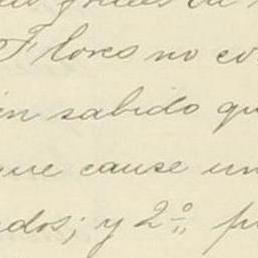 Flores no co
en sabido qu
que cause un
dos; y 2º pu